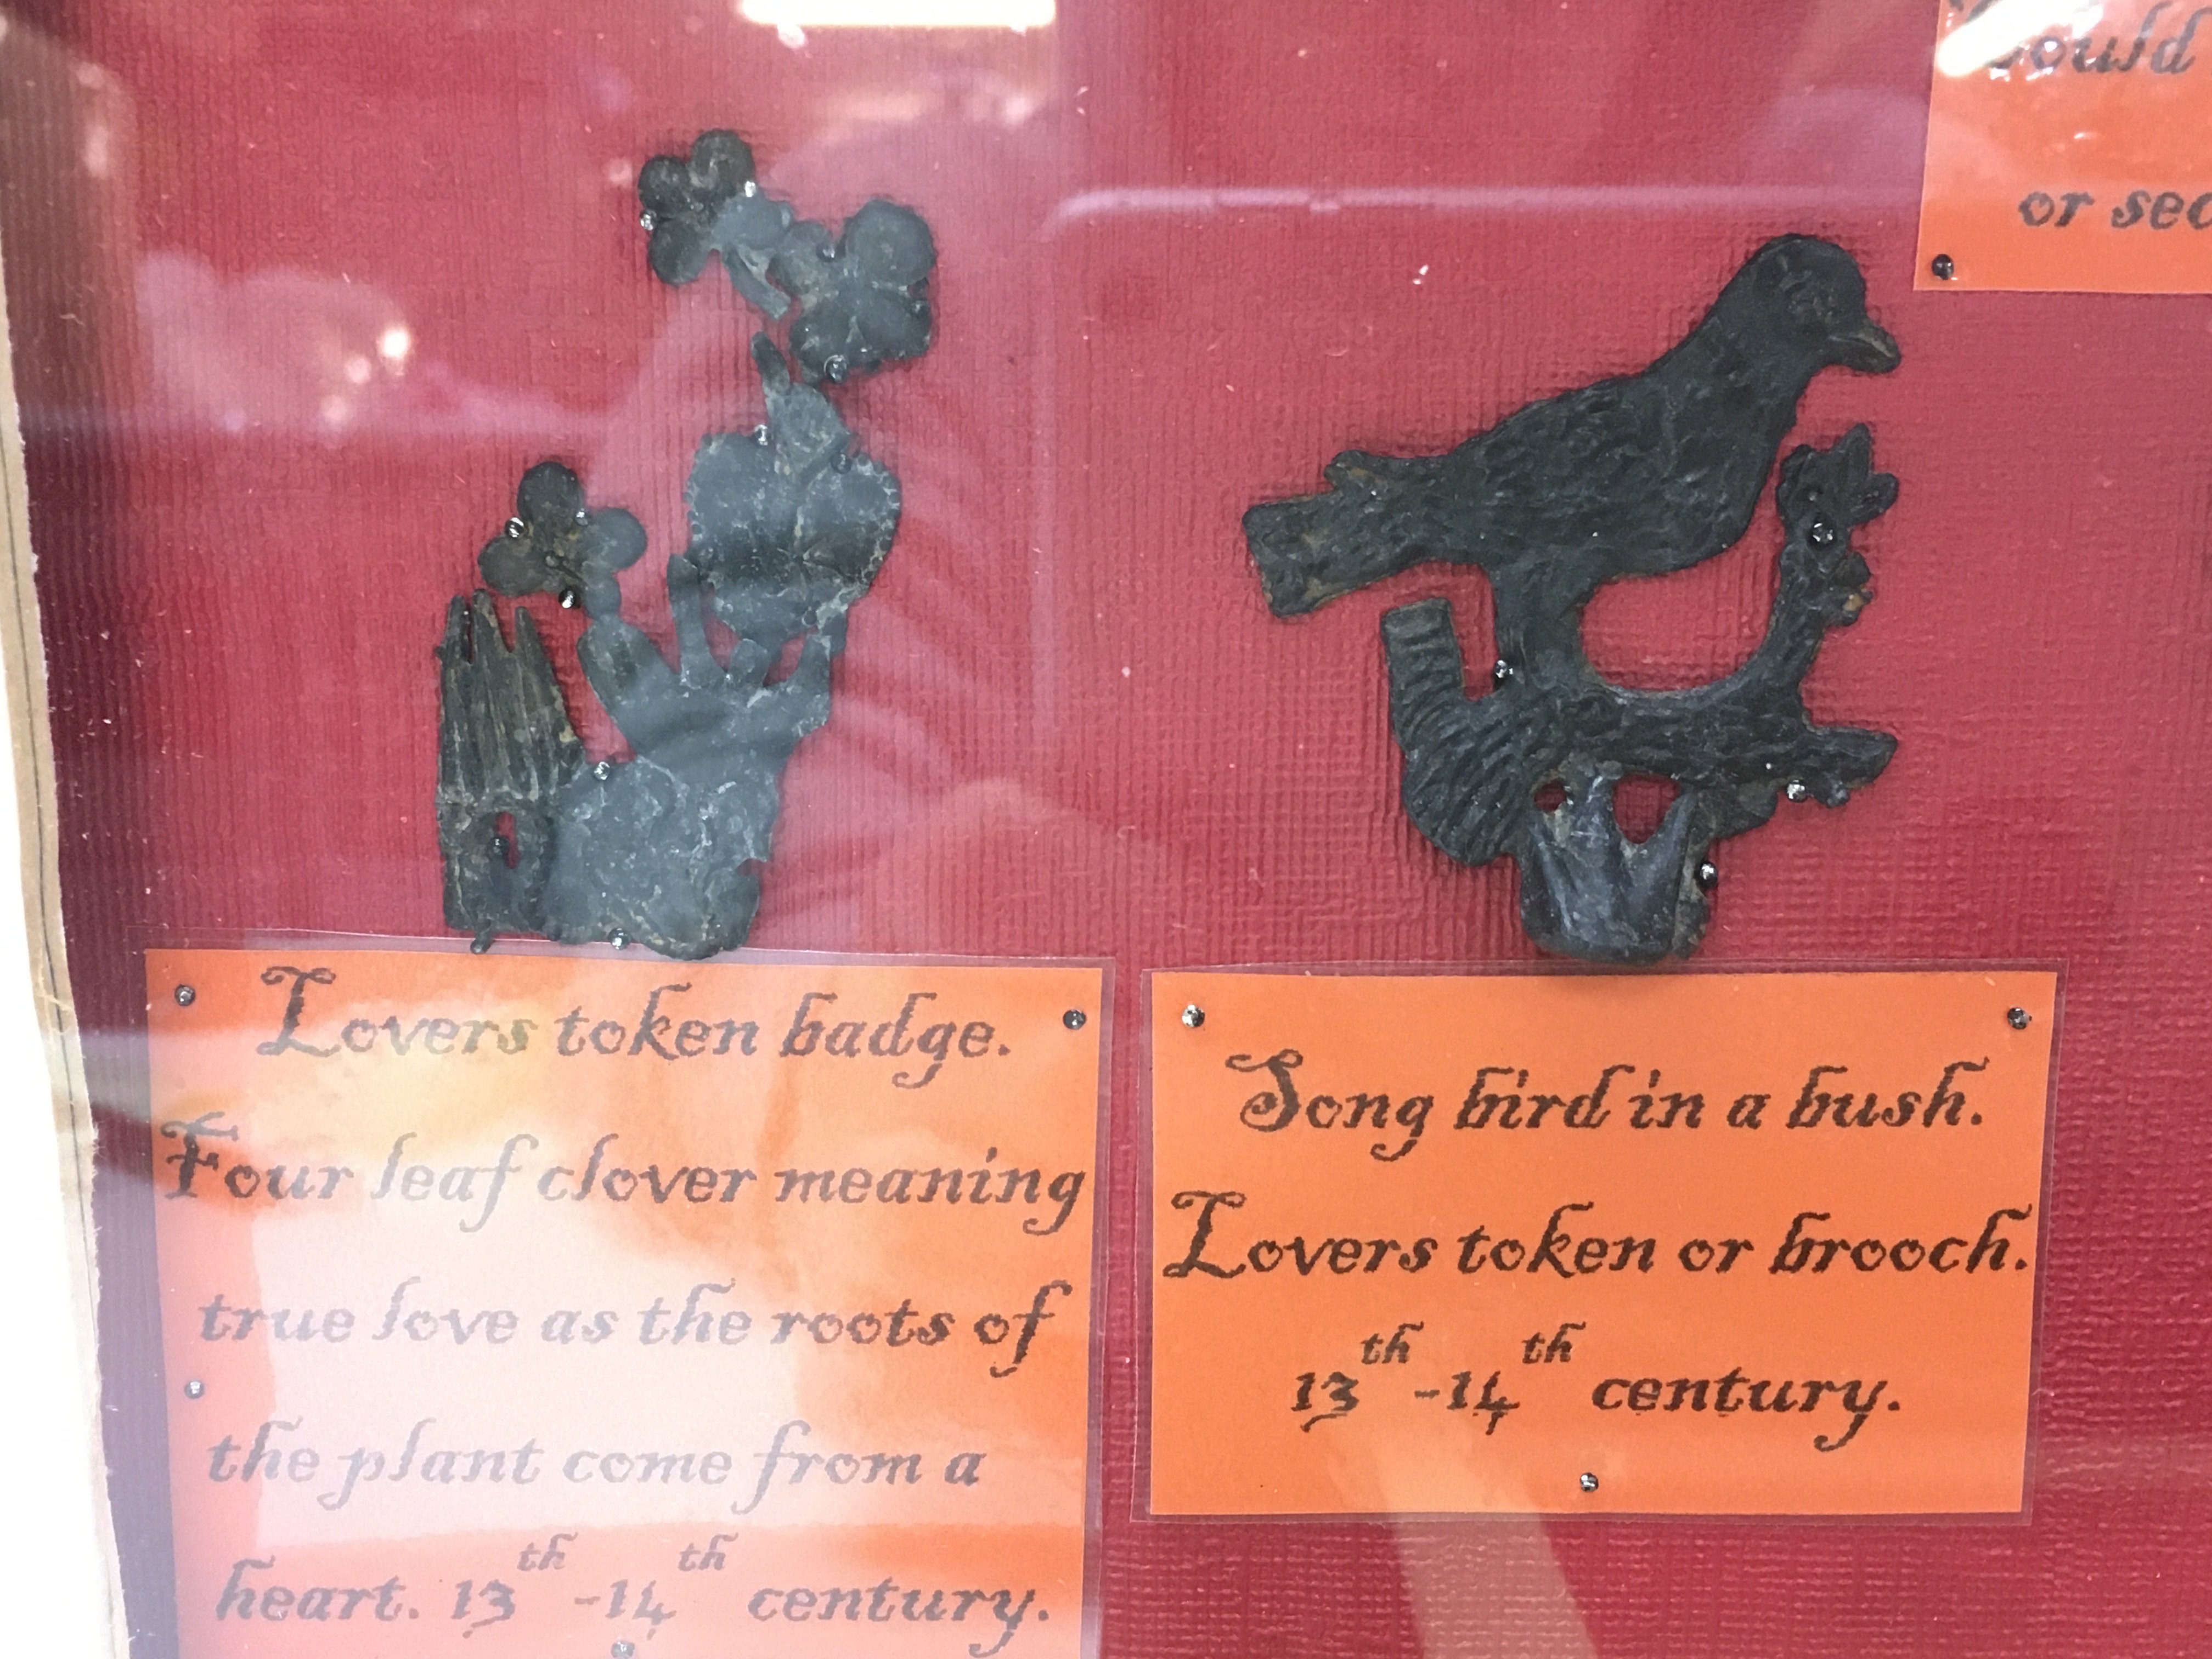 could
or sec
Lovers token badge.
Four leaf clover meaning
true love as the roots of
the plant come from a
heart. 13th-14th century.
Song bird in a bush.
Lovers token or brooch.
13th-14th century.